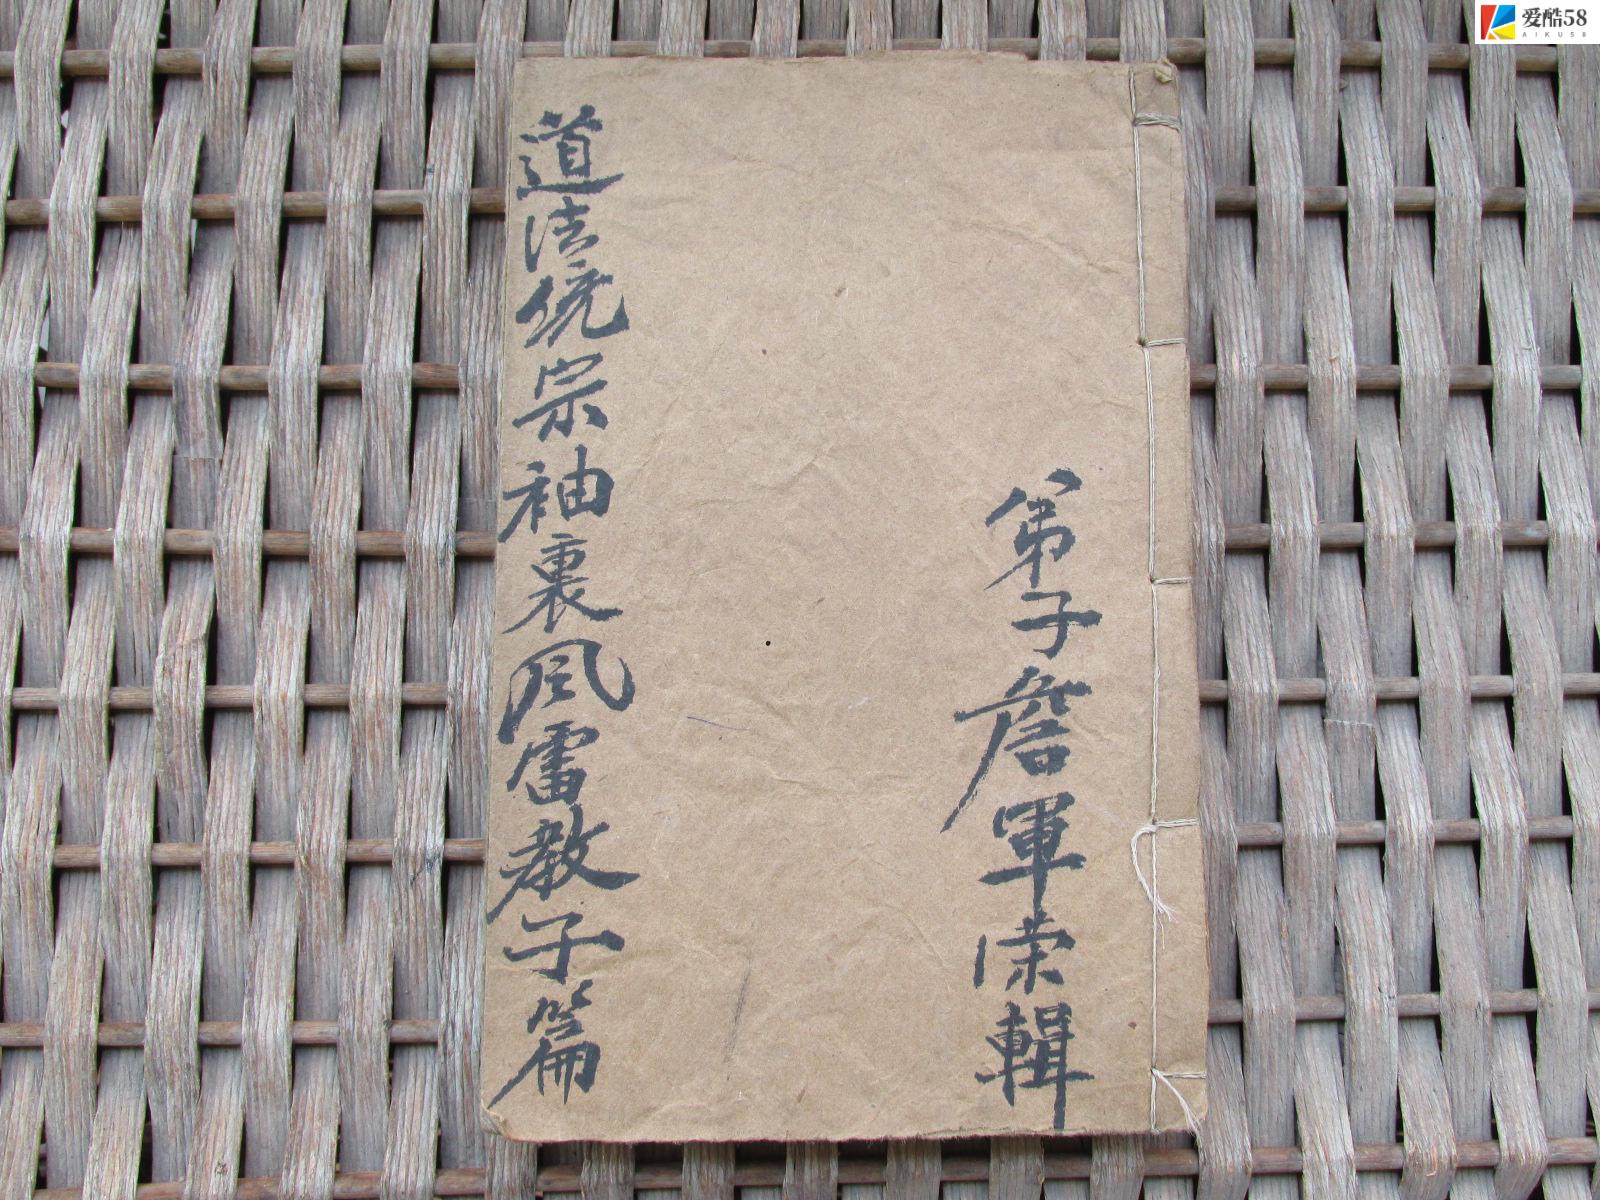 弟子詹軍荣輯
道法統宗袖裏风雷教子篇
爱酷58
AIKU58